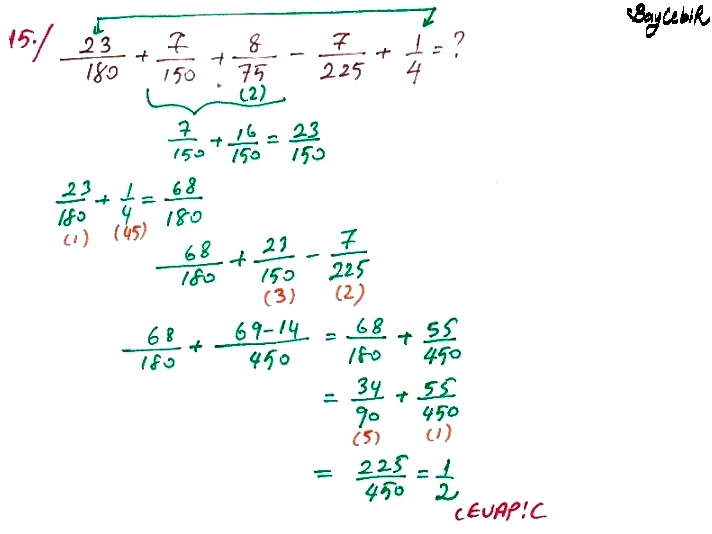 BayCebiR
15./ 23/180 + 7/150 + 8/75 - 7/225 + 1/4 = ?
(2)
7/150 + 16/150 = 23/150
23/180 + 1/4 = 68/180
(1) (45)
68/180 + 23/150 - 7/225
(3) (2)
68/180 + 69-14/450 = 68/180 + 55/450
= 34/90 + 55/450
(5) (1)
= 225/450 = 1/2
CEVAP: C